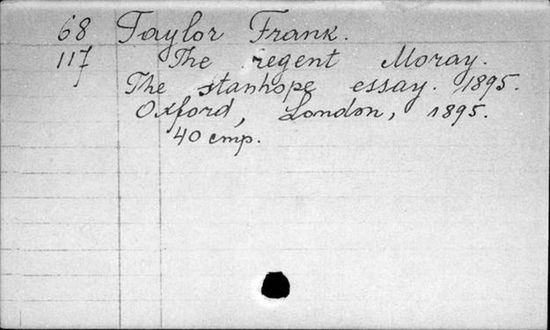 68 Taylor Frank.
117 The regent Moray.
The stanhope essay. 1895.
Oxford, London, 1895.
40 стр.